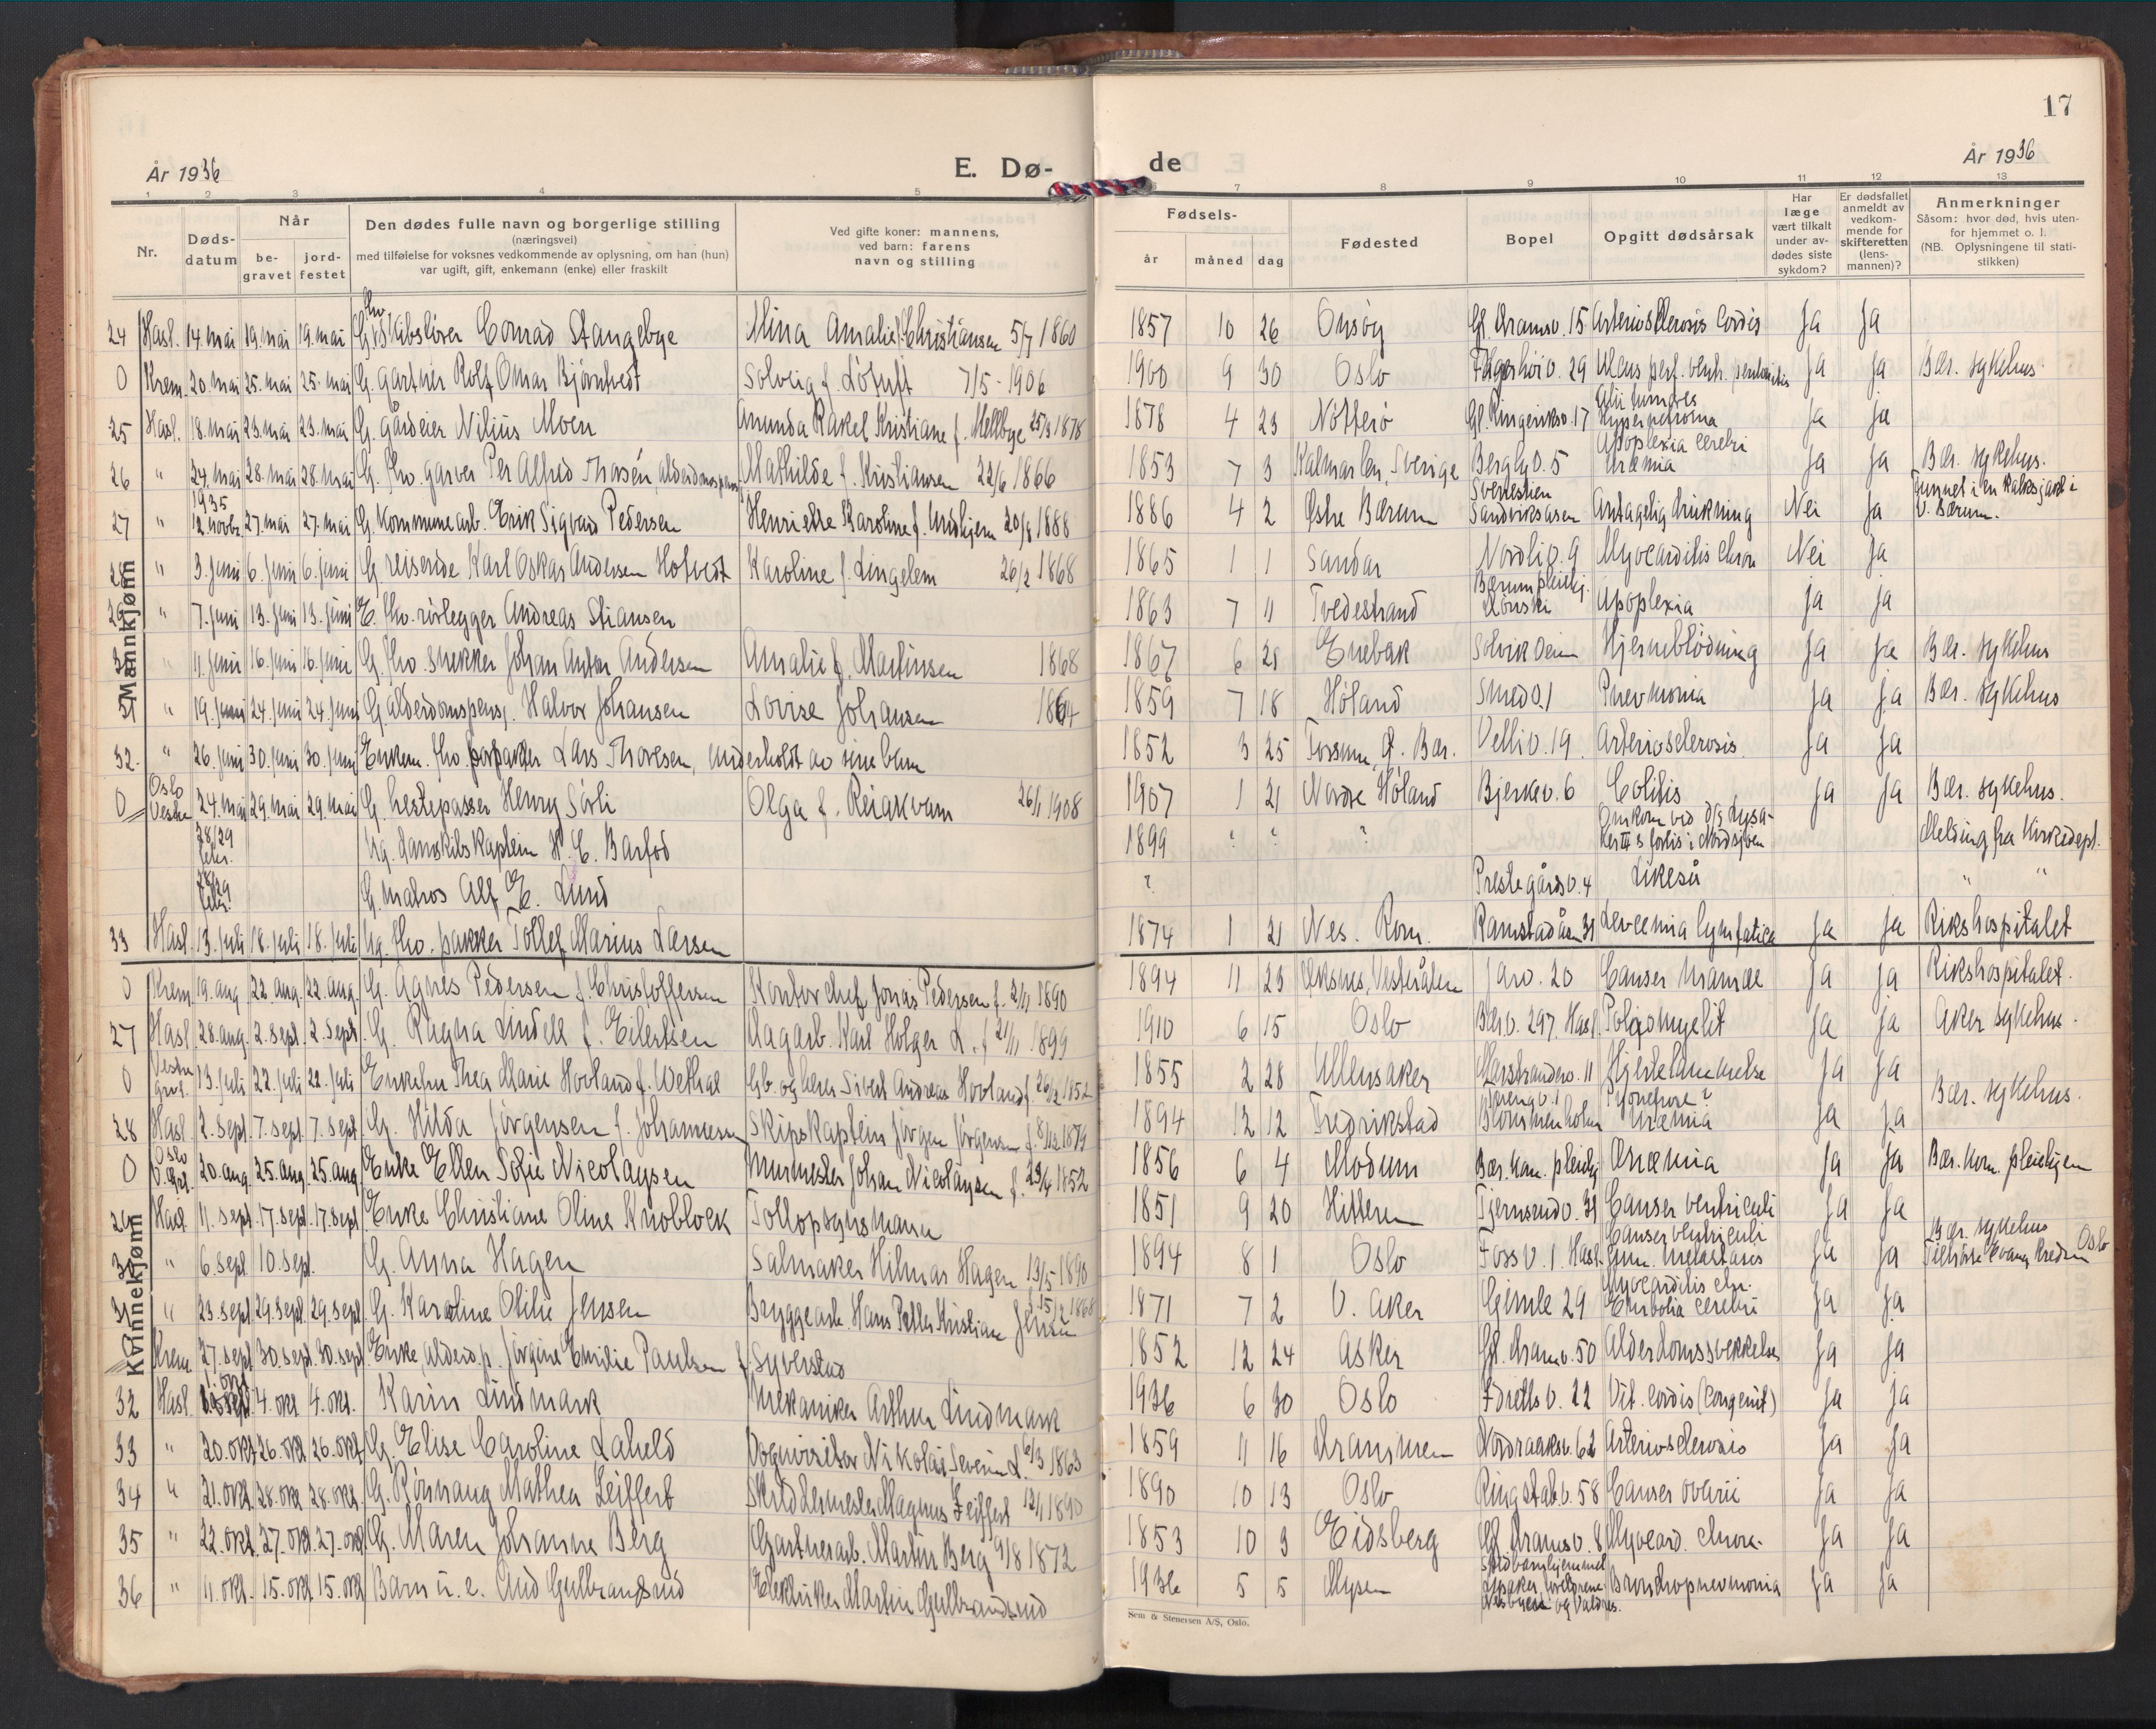 17
År 1936
E. Dø-
de
År 1936
1 2 3 4 5 6 7 8 9 10 11 12 13
Nr.
Døds-
datum
Når
be-
gravet
jord-
festet
Den dødes fulle navn og borgerlige stilling
(næringsvei)
med tilføielse for voksnes vedkommende av oplysning, om han (hun)
var ugift, gift, enkemann (enke) eller fraskilt
Ved gifte koner: mannens,
ved barn: farens
navn og stilling
Fødsels-
år måned dag
Fødested
Bopel
Opgitt dødsårsak
Har
læge
vært tilkalt
under av-
dødes siste
sykdom?
Er dødsfallet
anmeldt av
vedkom-
mende for
skifteretten
(lens-
mannen)?
Anmerkninger
Såsom: hvor død, hvis uten-
for hjemmet o. l.
(NB. Oplysningene til stati-
stikken)
Mannkjønn
24 Hasl. 14. mai 19. mai 19. mai G. fhv. Skibsfører Conrad Stangebye Mina Amalie f. Christiansen 5/7 1860 1857 10 26 Onsøy Gl. Dramsv. 15 Arteriosklerosis Cordis Ja Ja
0 Krem. 20. mai 25. mai 25. mai G. gartner Rolf Omar Bjørntvedt Solveig f. Løtuft 7/5-1906 1900 9 30 Oslo Fagerhøiv. 29 Ulcus perf. ventr. Ja Ja Bær. sykehus.
25 Hasl. 18. mai 23. mai 23. mai G. gårdeier Nilius Moen Amunda Rakel Kristiane f. Mellbye 25/3 1878 1878 4 23 Nøtterø Gl. Ringeriksv. 17 Hypernefroma Ja ja
26 " 24. mai 28. mai 28. mai G. fhv. garver Per Alfred Thorsén, Mathilde f. Kristiansen 22/6 1866 1853 7 3 Kalmar len, Sverige Berglyv. 5 Apoplexia cerebri Uræmia Ja Ja Bær. sykehus.
27 " 1935 12 novbr. 27. mai 27. mai G. kommunearb. Erik Sigvard Pedersen Henriette Karoline f. 20/8 1888 1886 4 2 Østre Bærum Sandviksåsen Antagelig drukning Nei Ja Funnet i en kalksjakt i V. Bærum.
28 " 3. juni 6. juni 6. juni G. reisende Karl Oskar Andersen Hotvedt Karoline f. Lingelem 26/2 1868 1865 1 1 Sandar Nordliv. 9 Myocarditis chron Nei Ja
29 " 7. juni 13. juni 13. juni E. fhv. rørlegger Andreas Stiansen 1863 7 11 Tvedestrand Bærum pleiehj. Apoplexia Ja Ja
" 11. juni 16. juni 16. juni G. fhv. snekker Johan Anton Andersen Amalie f. Martinsen 1868 1867 6 21 Enebak Solvikveien Hjerneblødning Ja Ja Bær. sykehus
31 " 19. juni 24. juni 24. juni G. alderdomspensj. Halvor Johansen Lovise Johansen 1864 1859 7 18 Høland Smedv. 1 Pnevmonia Ja Ja Bær. sykehus
32. " 26. juni 30. juni 30. juni Enkem. fhv. forpakter Lars Thoresen, underholdt av sine barn 1852 3 25 Fossum, Ø. Bær. Velliv. 19. Arteriosclerosis. Ja Ja
0 Oslo Vestre 24. mai 29. mai 29. mai G. hestepasser Henry Sørli Olga f. Reiakvam 26/1 1908 1907 1 21 Nordre Høland Bjerkev. 6 Colitis Ja Ja Bær. sykehus.
28/29 febr. Ug. dampskibskaptein H. C. Barfod 1899 ? ? ? Omkom ved D/S Lysaker III's forlis i Nordsjøen Melding fra Kirkedept.
28/29 febr. G. matros Alf E. Lund ? Prestegårdsv. 4 Likeså " "
33 Hasl. 13. juli 18. juli 18. juli Ug. fhv. pakker Tollef Marius Larsen 1874 1 21 Nes. Rom. Ramstadås. 31 Levcemia lymfatica Ja Ja Rikshospitalet
Kvinnekjønn
0 Krem. 19. aug 22 aug. 22. aug. G. Agnes Pedersen f. Christoffersen Kontorchef Jonas Pedersen f. 2/11 1890 1894 11 23 Øksnes, Vesterålen Jarv. 20 Cancer mamae Ja Ja Rikshospitalet.
27 Hasl. 28. aug. 2. sept. 2. sept. G. Ragna Lindell f. Eilertsen Lagarb. Karl Holger L. f. 21/11 1899 1910 6 15 Oslo Bær.v. 297. Hasl. Poliomyelit Ja ja Aker sykehus.
0 Vestre Grav. 13. juli 22. juli 22. juli Enkefru Thea Marie Hovland f. Wethal Gb. og lærer Sivert Andreas Hovland f. 26/2 1852 1855 2 28 Ullensaker Marstranderv. 11 Hjertelammelse Ja Ja
28 Hasl. 2. sept. 7. sept. 7. sept. G. Hilda Jørgensen f. Johannesen Skipskaptein Jørgen Jørgensen f. 8/12 1879 1894 12 12 Fredrikstad Blommenholm Pyonefrose? Uræmia Ja Ja Bær. sykehus.
0 Oslo V. Grl. 20. aug. 25. aug. 25. aug. Enke Ellen Sofie Nicolaysen Murmester Johan Nicolaysen f. 23/4 1852 1856 6 4 Modum Bær. kom. pleiehj Anæmia Ja Ja Bær. kom. pleiehjem
29 Hasl. 11. sept. 17. sept. 17. sept. Enke Christiane Oline Knoblock Tollopsynsmann 1851 9 20 Hitteren Tjernsrudv. 31 Cancer ventriculi Ja Ja
30 " 6. sept. 10. sept. G. Anna Hagen Salmaker Hilmar Hagen 13/5 1890 1894 8 1 Oslo Fossv. 1. Hasl. Cancer ventriculi cum. metastases Ja Ja Bær. sykehus Tilhørte Evang. kredsen Oslo
31 " 23. sept. 29. sept. 29. sept. G. Karoline Otilie Jensen Bryggearb. Hans Petter Kristian Jensen 1868 1871 7 2 V. Aker Gimle 29 Myocarditis chr. Embolia cerebri Ja Ja
Krem. 27. sept. 30. sept. 30. sept. Enke, alderd.p. Jørgine Emilie Paulsen f. Syverstad 1852 12 24 Asker Gl. Dramv. 50 Alderdomssvekkelse Ja Ja
32 Hasl. 1. okt. 4. okt. 4. okt. Karin Lindmark Mekaniker Arthur Lindmark 1936 6 30 Oslo Idrettsv. 22 Vit. cordis (congenit) Ja ja
33 " 20. okt. 26. okt. 26. okt. G. Elise Caroline Laheld Vognvisitør Nikolai Severin L. 6/3 1863 1859 11 16 Drammen Nordraaksv. 62 Arteriosclerosis Ja Ja
34 " 21. okt. 28. okt. 28. okt. G. Rønnaug Mathea Zeiffert Skreddermester Magnus Zeiffert 12/1 1890 1890 10 13 Oslo Ringstabv. 58 Cancer ovarii Ja Ja
35 " 22. okt. 27. okt. 27. okt. G. Maren Johanne Berg Gartnerarb. Martin Berg 9/8 1872 1853 10 3 Eidsberg Gl. Dramsv. 8 Myocard. chron. Ja Ja
36 " 11. okt. 15. okt. 15. okt. Barn u. e. Aud Gulbrandsrud Elektriker Martin Gulbrandsrud 1936 5 5 Mysen Spedbarnhjemmet Lysaker, foreldrene Nesbyen og Valdres. Bronchopnevmonia Ja Ja
Sem & Stenersen A/S, Oslo.